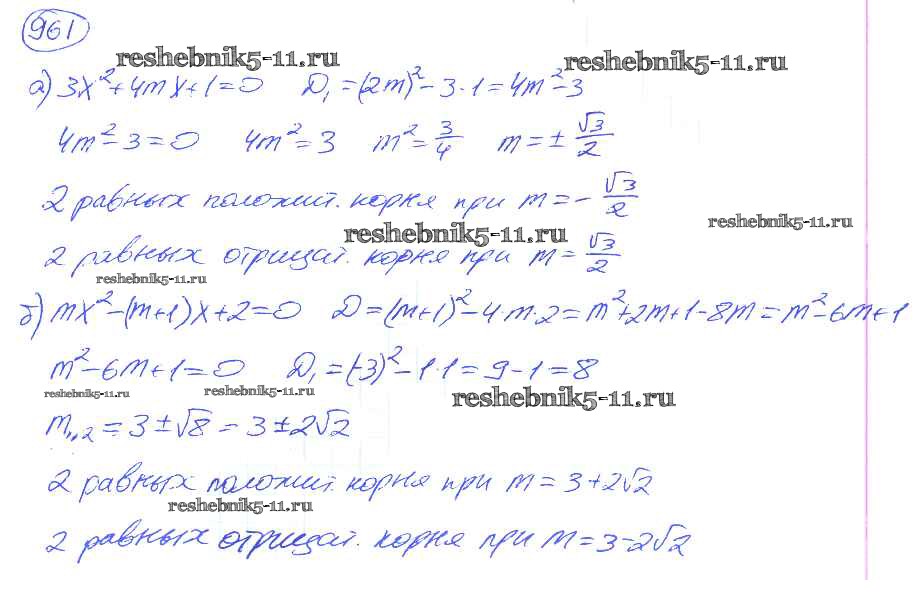 961
reshebnik5-11.ru reshebnik5-11.ru
а) 3x² + 4mx + 1 = 0 D₁ = (2m)² - 3·1 = 4m² - 3
4m² - 3 = 0 4m² = 3 m² = 3/4 m = ± √3/2
2 равных полож​ит. корня при m = - √3/2
reshebnik5-11.ru reshebnik5-11.ru
2 равных отрицат. корня при m = √3/2
reshebnik5-11.ru
б) mx² - (m+1)x + 2 = 0 D = (m+1)² - 4·m·2 = m² + 2m + 1 - 8m = m² - 6m + 1
m² - 6m + 1 = 0 D₁ = (-3)² - 1·1 = 9 - 1 = 8
reshebnik5-11.ru reshebnik5-11.ru reshebnik5-11.ru
m₁,₂ = 3 ± √8 = 3 ± 2√2
2 равных положит. корня при m = 3 + 2√2
reshebnik5-11.ru
2 равных отрицат. корня при m = 3 - 2√2